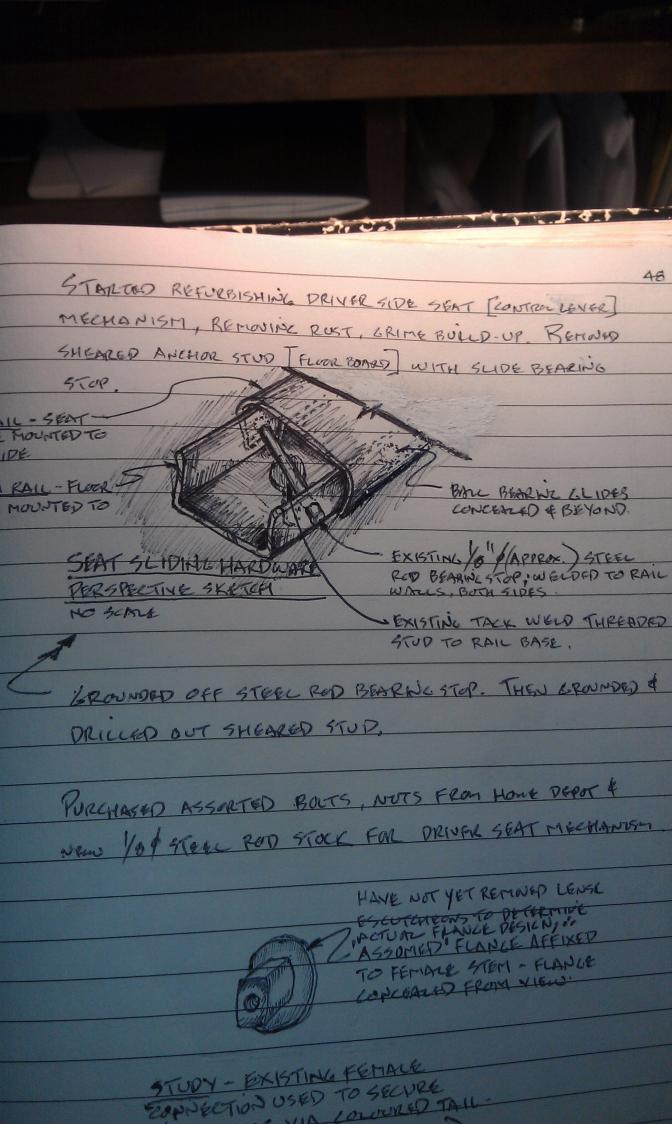 48
STARTED REFURBISHING DRIVER SIDE SEAT [CONTROL LEVER]
MECHANISM, REMOVING RUST, GRIME BUILD-UP. REMOVED
SHEARED ANCHOR STUD [FLOOR BOARD] WITH SLIDE BEARING
STOP.
AIL - SEAT
MOUNTED TO
IDE
RAIL - FLOOR
MOUNTED TO
BALL BEARING GLIDES
CONCEALED & BEYOND.
SEAT SLIDING HARDWARE
PERSPECTIVE SKETCH
NO SCALE
EXISTING 1/8" ϕ (APPROX.) STEEL
ROD BEARING STOP; WELDED TO RAIL
WALLS, BOTH SIDES.
EXISTING TACK WELD THREADED
STUD TO RAIL BASE.
GROUNDED OFF STEEL ROD BEARING STOP. THEN GROUNDED &
DRILLED OUT SHEARED STUD.
PURCHASED ASSORTED BOLTS, NUTS FROM HOME DEPOT &
NEW 1/8 ϕ STEEL ROD STOCK FOR DRIVER SEAT MECHANISM
HAVE NOT YET REMOVED LENSE
ESCUTCHEONS TO DETERMINE
ACTUAL FLANGE DESIGN,
ASSUMED FLANGE AFFIXED
TO FEMALE STEM - FLANGE
CONCEALED FROM VIEW.
STUDY - EXISTING FEMALE
CONNECTION USED TO SECURE
VIA COLOURED TAIL.